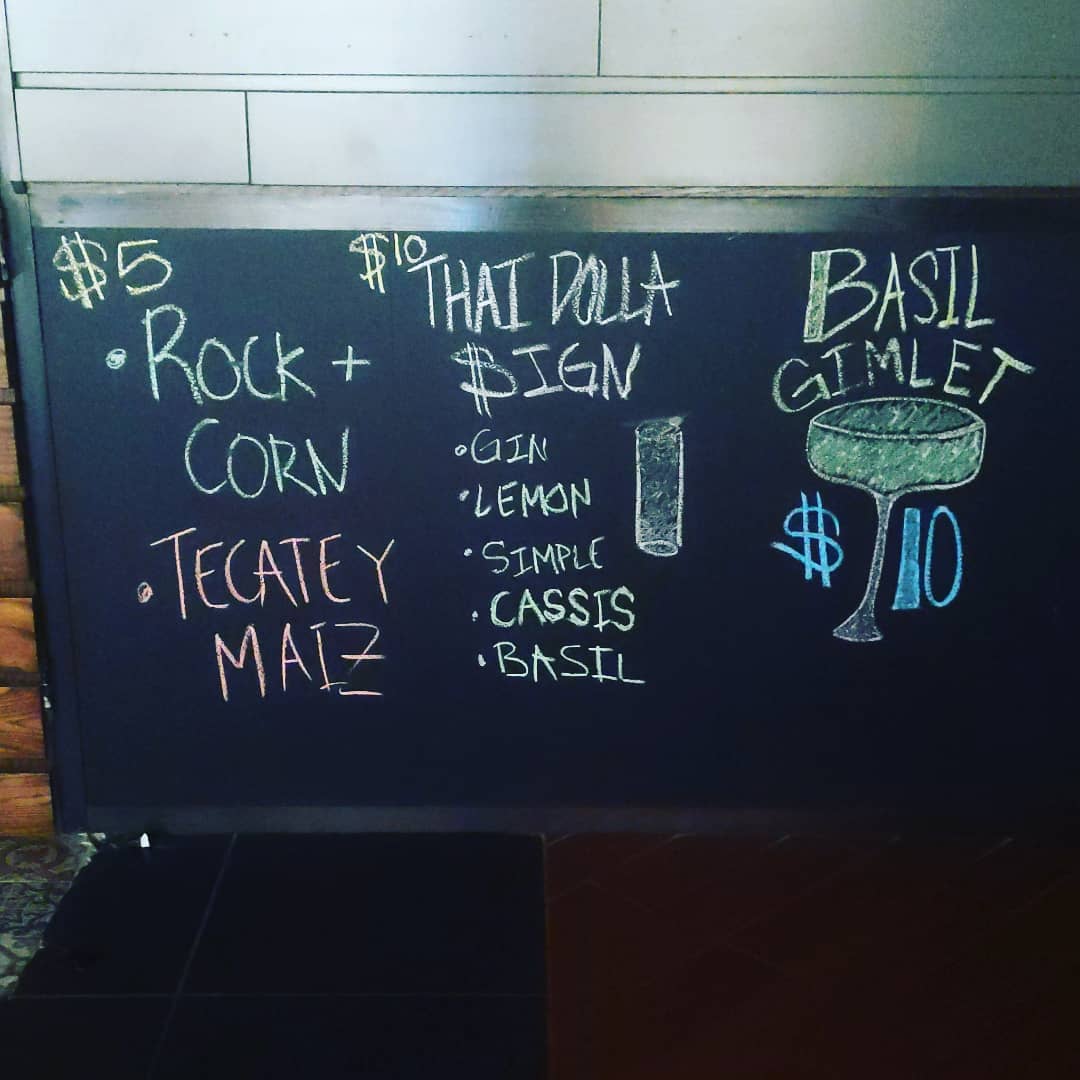 $5
• ROCK +
CORN
• TECATE Y
MAIZ
$10 THAI DOLLA
$IGN
• GIN
• LEMON
• SIMPLE
• CASSIS
• BASIL
BASIL
GIMLET
$10